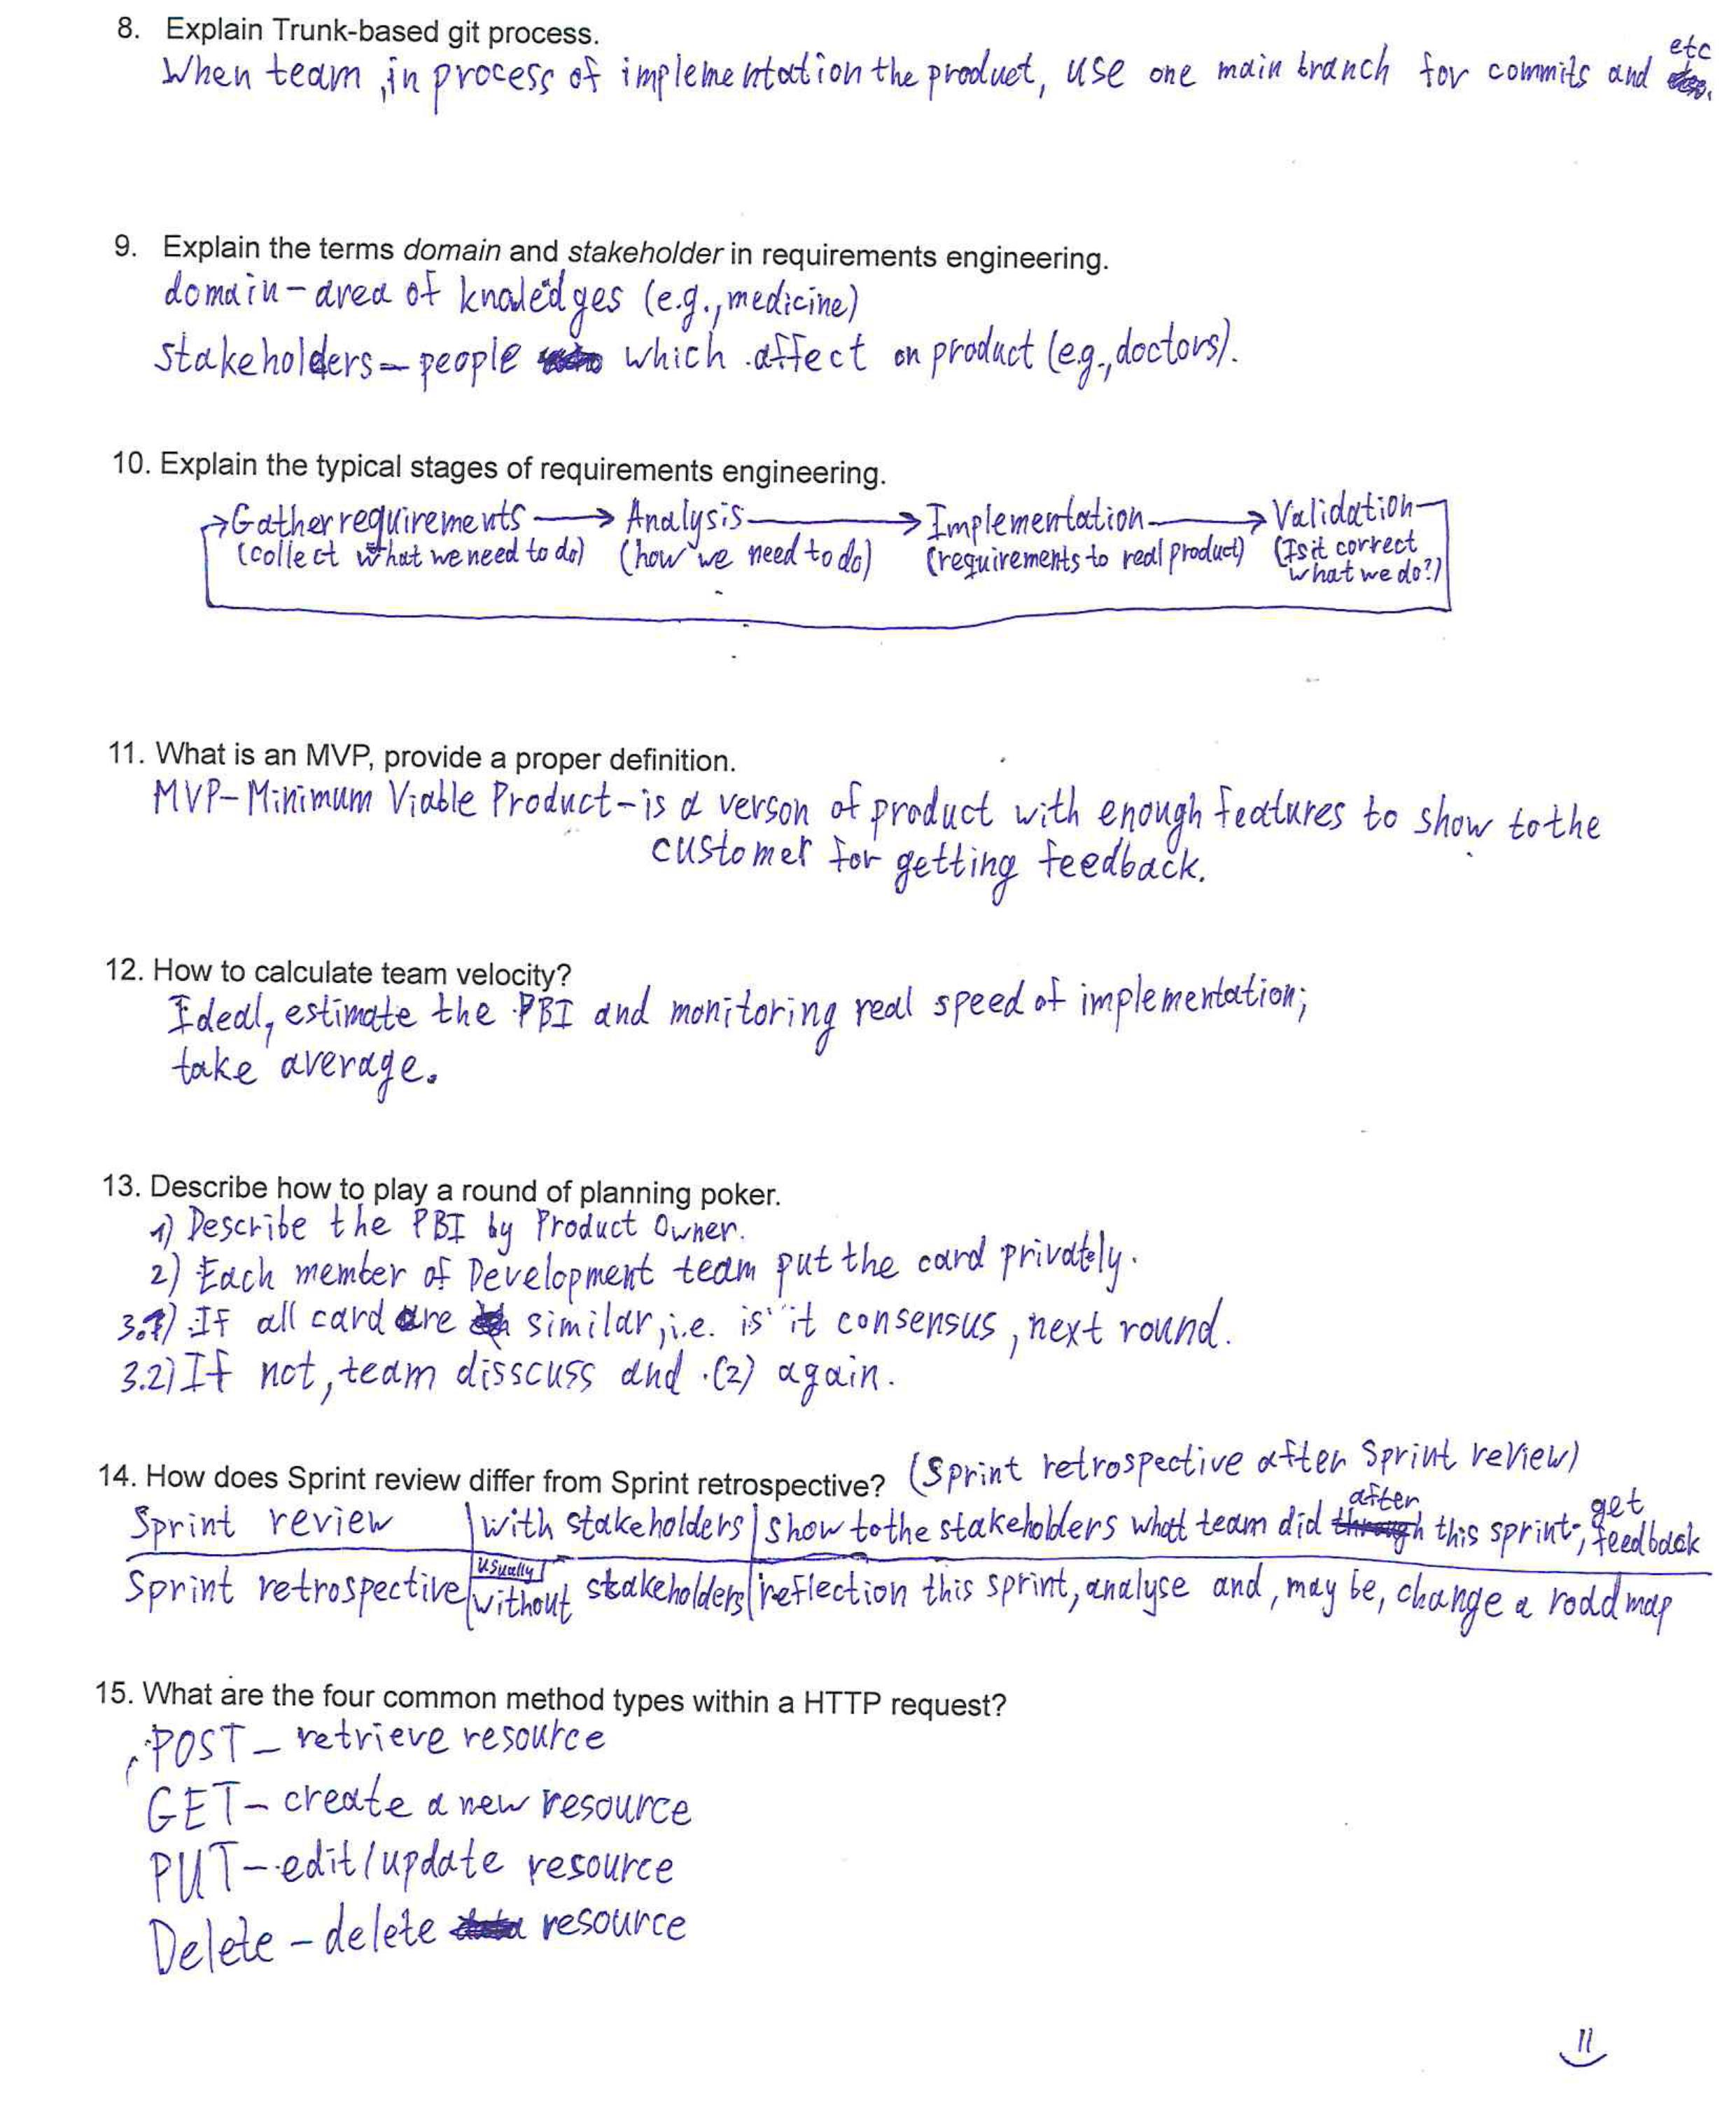 8. Explain Trunk-based git process.
etc
When team, in process of implementation the product, use one main branch for commits and
9. Explain the terms domain and stakeholder in requirements engineering.
domain - area of knoledges (e.g., medicine)
stakeholders - people which affect on product (e.g., doctors).
10. Explain the typical stages of requirements engineering.
→ Gather requirements → Analysis → Implementation → Validation
(collect what we need to do) (how we need to do) (requirements to real product) (Is it correct
what we do?)
11. What is an MVP, provide a proper definition.
MVP - Minimum Viable Product - is a verson of product with enough features to show to the
customer for getting feedback.
12. How to calculate team velocity?
Ideal, estimate the PBI and monitoring real speed of implementation;
take average.
13. Describe how to play a round of planning poker.
1) Describe the PBI by Product Owner.
2) Each member of Development team put the card privately.
3.1) If all card are similar, i.e. is it consensus, next round.
3.2) If not, team disscuss and (2) again.
(Sprint retrospective after Sprint review)
14. How does Sprint review differ from Sprint retrospective?
after get
Sprint review | with stakeholders | show to the stakeholders what team did through this sprint; feedback
usually
Sprint retrospective | without stakeholders | reflection this sprint, analyse and, may be, change a roadmap
15. What are the four common method types within a HTTP request?
POST - retrieve resource
GET - create a new resource
PUT - edit/update resource
Delete - delete resource